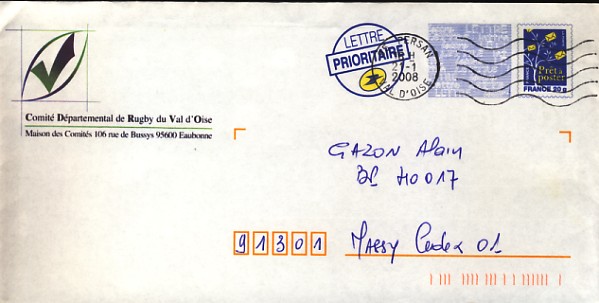 LETTRE
PRIORITAIRE
PERSAN
H
21-1
2008
VAL D'OISE
Prêt à
poster
FRANCE 20 g
Comité Départemental de Rugby du Val d'Oise
Maison des Comités 106 rue de Bussys 95600 Eaubonne
GAZON Alain
BP 40017
91301 Massy Cedex 01